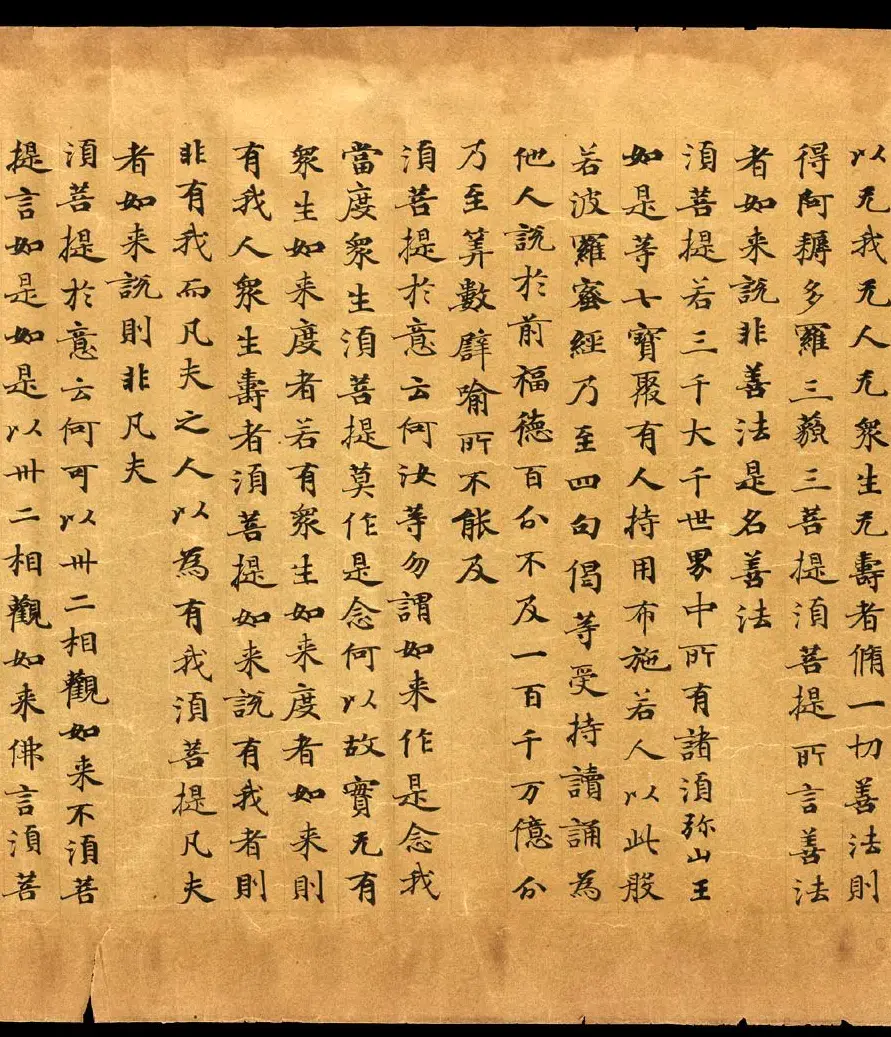 以无我无人无衆生无壽者脩一切善法則
得阿耨多羅三藐三菩提須菩提所言善法
者如来說非善法是名善法
須菩提若三千大千世界中所有諸須弥山王
如是等七寶聚有人持用布施若人以此般
若波羅蜜經乃至四句偈等受持讀誦為
他人說於前福德百分不及一百千万億分
乃至筭數譬喻所不能及
須菩提於意云何汝等勿謂如来作是念我
當度衆生須菩提莫作是念何以故實无有
衆生如来度者若有衆生如来度者如来則
有我人衆生壽者須菩提如来說有我者則
非有我而凡夫之人以為有我須菩提凡夫
者如来說則非凡夫
須菩提於意云何可以卅二相觀如来不須菩
提言如是如是以卅二相觀如来佛言須菩